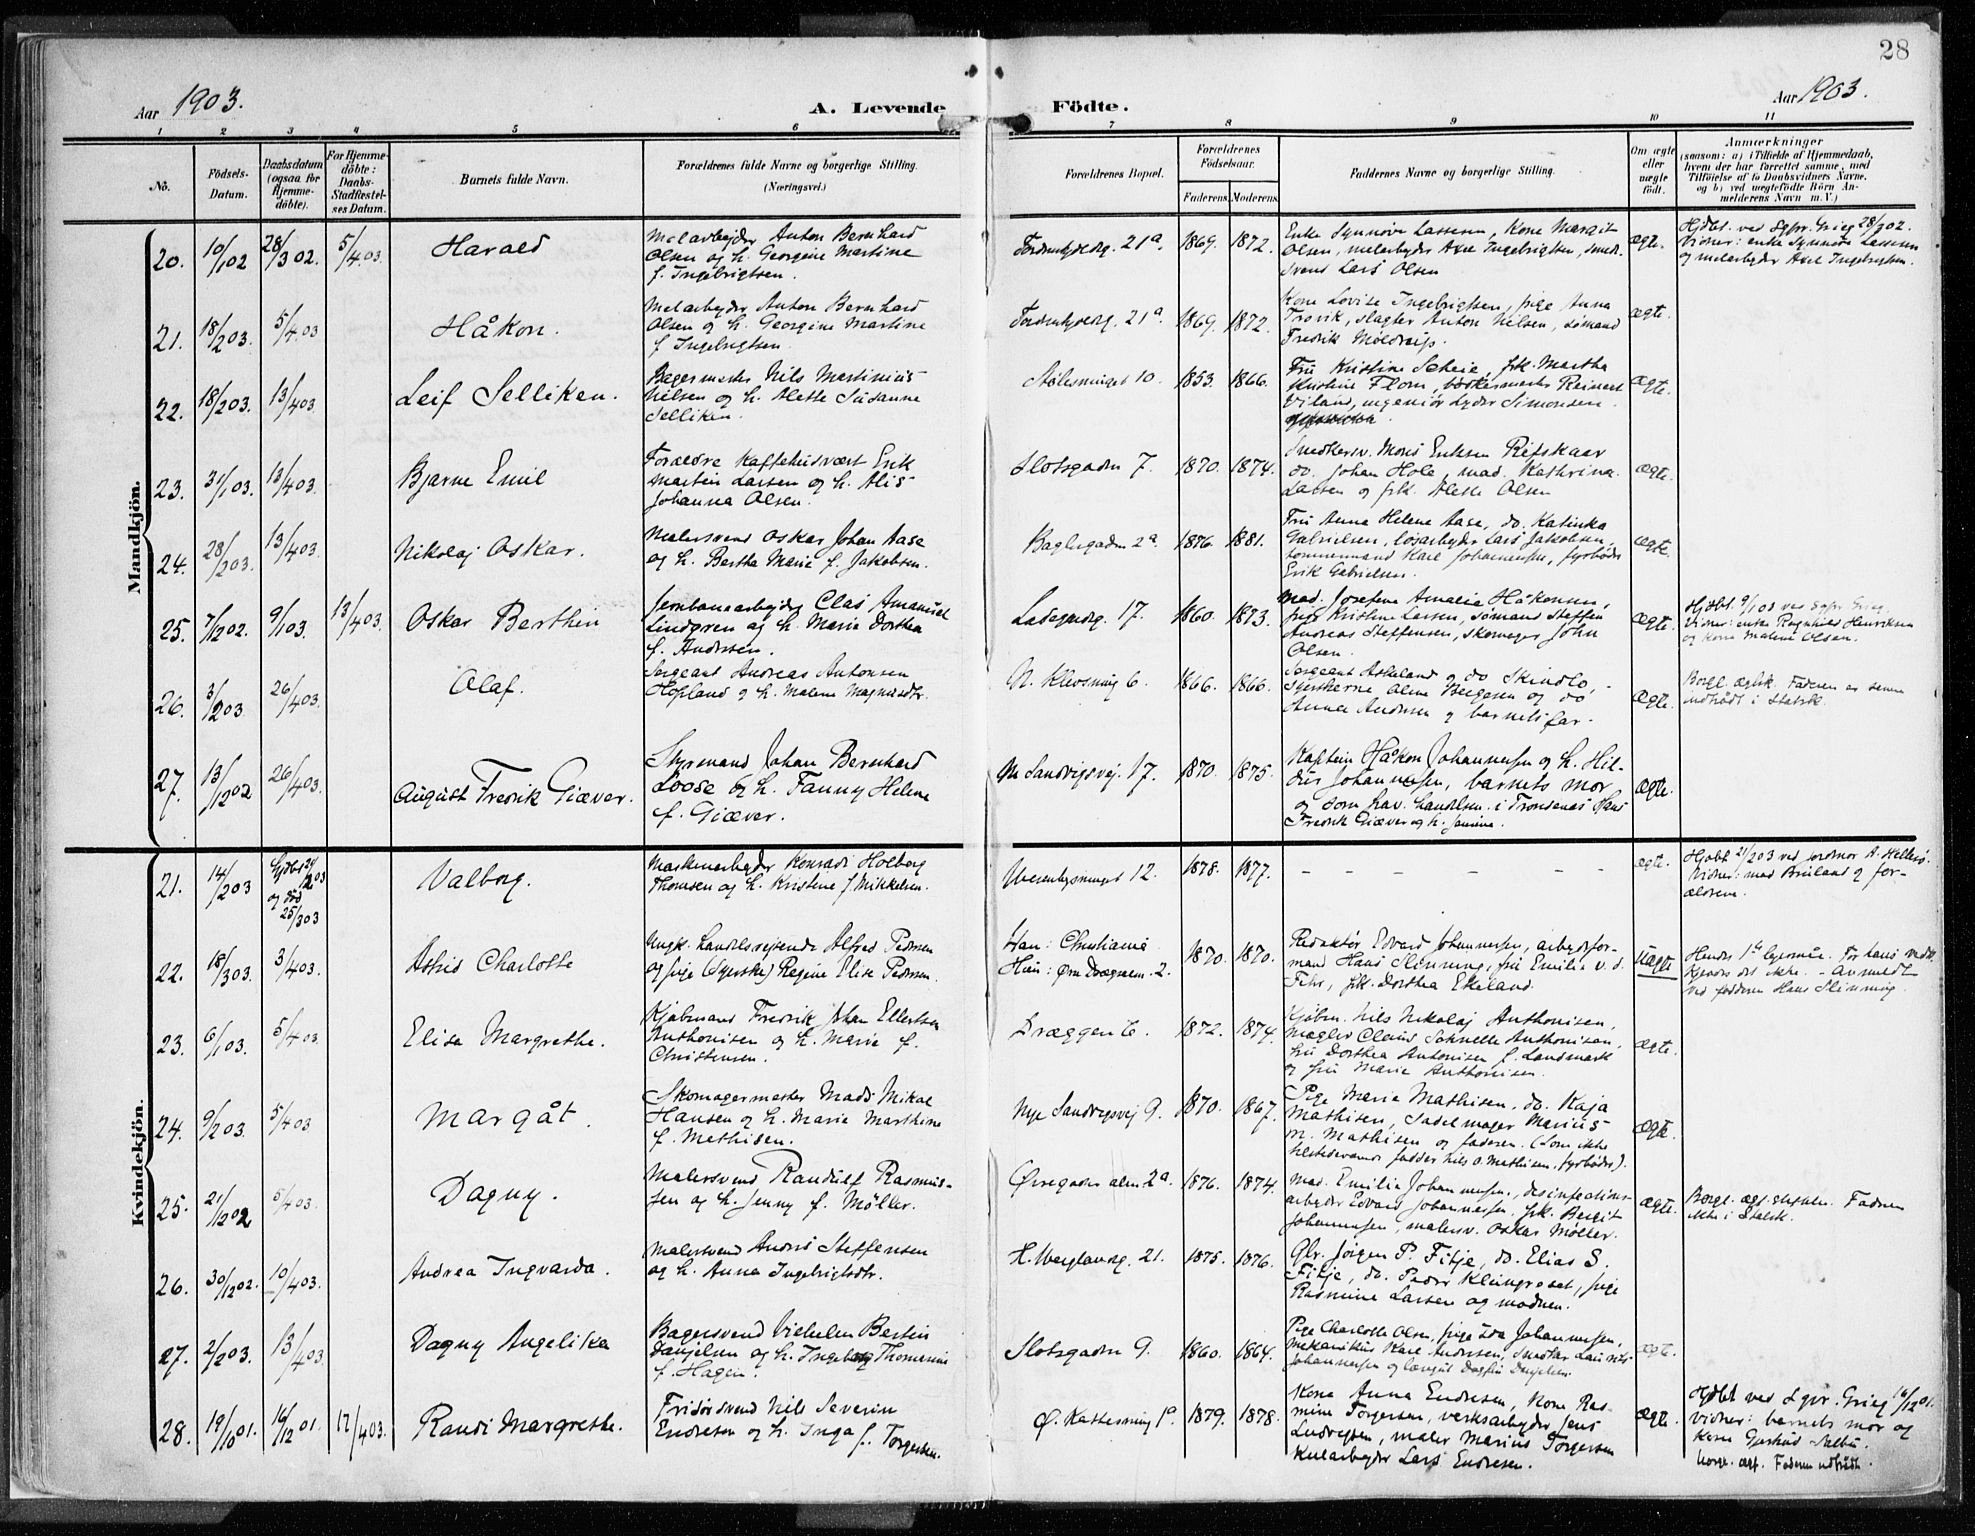 28
Aar 1903.
A. Levende Födte.
Aar 1903.
1 2 3 4 5 6 7 8 9 10 11
No.
Födsels-
Datum.
Daabsdatum
(ogsaa for
Hjemme-
döbte).
For Hjemme-
döbte:
Daabs-
Stadfæstel-
ses Datum.
Barnets fulde Navn.
Forældrenes fulde Navne og borgerlige Stilling.
(Næringsvei.)
Forældrenes Bopæl.
Forældrenes
Födselsaar.
Faderens. Moderens.
Faddernes Navne og borgerlige Stilling.
Om ægte
eller
uægte
födt.
Anmærkninger
(saasom: a) i Tilfælde af Hjemmedaab,
hvem der har forrettet samme, med
Tilföielse af to Daabsvidners Navne,
og b) ved uægtefödte Börn An-
melderens Navn m. V.)
Mandkjön.
20. 10/1 02 28/3 02. 5/4 03. Harald
Melarbejder Anton Bernhard
Olsen og h. Georgine Martine
f. Ingebrigtsen.
21a. 1869. 1872.
Enke Synnøve Lassen, Kone Margit
Olsen, melarbejder Axel Ingebrigtsen, smed-
svend Lars Olsen
ægte.
Vidner: enke Synnøve Lassen
og melarbejder Axel Ingebrigtsen.
21. 18/2 03. 5/4 03 Håkon.
Melarbejder Anton Bernhard
Olsen og h. Georgine Martine
f. Ingebrigtsen.
21a. 1869. 1872.
Kone Lovise Ingebrigtsen, pige Anna
slagter Anton Nilsen, sømand
Fredrik
ægte.
22. 18/2 03. 13/4 03. Leif Selliken.
Bagermester Nils Martinius
Nielsen og h. Alette Susanne
Selliken.
Stølesmuget 10. 1853. 1866.
Fru Kristine Scheie, frk. Martha
Kristine Flom, Reinert
ingeniør Lyder Simonsen.
ægte.
23. 31/1 03. 13/4 03. Bjarne Emil
Forældre Kaffehusvært Erik
Martin Larsen og h. Alis
Johanna Olsen.
Slotsgaden 7. 1870. 1874.
Snedkersv. Mons Eriksen Refskaar
do. Johan Hole, mad. Kathrina
Larsen og frk. Alette Olsen
ægte.
24. 28/2 03. 13/4 03. Nikolaj Oskar.
Malersvend Oskar Johan Aase
og h. Bertha Marie f. Jakobsen.
Baglergaden 2a 1876. 1881.
Fru Anna Helene Aase, do. Katinka
Gabrielsen, løsarbejder Lars Jakobsen,
tømmermand Karl Johannesen, fyrbøder
Erik Gabrielsen.
ægte.
25. 7/12 02. 9/1 03. 13/4 03. Oskar Berthin
Jernbanearbejder Clas Amanuel
Lindgren og h. Marie Dorthea
f. Andersen.
Ladegaardsg. 17. 1860. 1873.
Mad. Josefine Amalie Håkonsen,
pige Kristine Larsen, sømand Steffen
Andreas Steffensen, skomager John
Olsen.
ægte.
Hjdbt. 9/1 03 ved Sgpr. Grieg.
Vidner: enke Ragnhild Henriksen
og kone Malene Olsen.
26. 3/2 03. 26/4 03. Olaf.
Sergeant Andreas Antonsen
Hopland og h. Malene Magnusdtr.
N. Klevsmug 6. 1866. 1866.
Sergeant Askeland og do Skindlo,
syerskerne Aline Bergesen og do
Anna Andersen og barnets far.
ægte.
Borgl. ægtsk. Faderen er senere
indtrådt i Statsk.
27. 13/12 02 26/4 03. August Fredrik Giæver.
Styrmand Johan Bernhard
Loose og h. Fanny Helene
f. Giæver.
Ny Sandvigsvej. 17. 1870. 1875.
Kaptein Håkon Johannesen og h. Hil-
dur Johannesen, barnets mor
og som fav. handelsm. i Trondenæs Hans
Fredrik Giæver og h. Jensine.
ægte.
Kvindekjön.
21. 14/2 03 Hjdbt 24/2 03
og död
25/3 03
Valborg.
Maskinarbejder Konrad Holberg
Thomsen og h. Kristine f. Mikkelsen.
12. 1878. 1877. - - - - - -
ægte.
Hjdbt 21/2 03 ved jordmor A. Hellesø.
Vidner: mad Bruland og for-
ældrene.
22. 18/3 03. 3/4 03. Astrid Charlotte
Ungk. handelsrejsende Alfred Pedersen
og pige (syerske) Regine Elise Pedersen.
Han: Christiania
Hun: Øvre Dreggsalm. 2. 1870. 1870.
Redaktør Edvard Johannesen, arbejdsfor-
mand Hans Slinning, fru Emilie v. d.
Fehr, frk. Dorthea Ekeland.
uægte
Hendes 1ste lejermål. For hans vedk.
kjendes det ikke. - Anmeldt
ved fadderen Hans Slinning.
23. 6/1 03. 5/4 03 Elise Margrethe.
Kjøbmand Fredrik Johan Ellertsen
Anthonisen og h. Marie f.
Christensen.
Dræggen 6. 1872. 1874.
Kjøbm. Nils Nikolaj Anthonisen,
mægler Claus Schnelle Anthonisen,
fru Dorthea Antonisen f. Landmark
og fru Marie Anthonisen.
ægte.
24. 9/2 03. 5/4 03 Margåt.
Skomagermester Mads Mikal
Hansen og h. Marie Marthine
f. Mathisen.
Nye Sandvigsvej 9. 1870. 1867.
Pige Marie Mathisen, do. Kaja
Mathisen, Sadelmager Marius
M. Mathisen og faderen. (Som ikke
tilstedevær. fadder Nils O. Mathisen, fyrbøder).
ægte.
25. 21/12 02 5/4 03. Dagny.
Malersvend Randulf Rasmus-
sen og h. Jenny f. Møller.
Øvregaden alm. 2a. 1876. 1874.
Mad. Emilie Johannesen, desinfections-
arbejder Edvard Johannesen, frk. Bergit
Johannesen, malersv. Oskar Møller.
ægte.
Borgl. ægteskab. Faderen
ikke i Statsk.
26. 30/12 02. 10/4 03. Andrea Ingvarda.
Malersvend Andreas Steffensen
og h. Anna Ingebrigtsdtr.
H. Wergelandsg. 21. 1875. 1876.
Gbr. Jörgen P. Fitje, do. Elias S.
Fitje, do. Peder Klungreset, pige
Rasmine Larsen og moderen.
ægte.
27. 2/2 03. 13/4 03. Dagny Angelika
Bagersvend Vilhelm Bertin
Danjelsen og h. Ingeborg Thomine
f. Hagen.
Slotsgaden 9. 1860. 1864.
Pige Charlotte Olsen, pige Ida Johannesen,
Mekanikus Karl Andersen, Snedker Laurits
Johannesen og læregut Dagfin Danjelsen.
ægte.
28. 19/10 01. 16/12 01. 17/4 03. Randi Margrethe.
Frisørsvend Nils Severin
Endresen og h. Inga f. Torgersen.
Ø. Kattesmug 1a. 1879. 1878.
Kone Anna Endresen, Kone Ras-
mine Torgersen, verksarbejder Jens
Ludvigsen, maler Marius Torgersen
Kularbejder Lars Endresen.
ægte.
Hjdbt ved Sgpr. Grieg 16/12 01.
Vidner: barnets mor og
kone Gjertrud Sælbu.
borgl. ægt. Faderen udtrådt.